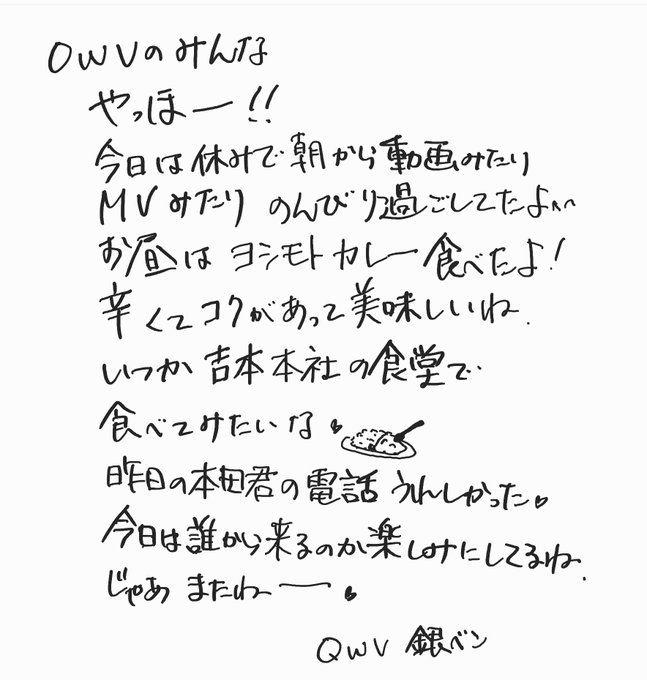 OWVのみんな
やっほー!!
今日は休みで朝から動画みたり
MVみたりのんびり過ごしてたよ^^
お昼はヨシモトカレー食べたよ!
辛くてコクがあって美味しいね.
いつか吉本本社の食堂で
食べてみたいな
昨日の本田君の電話うれしかった
今日は誰から来るのか楽しみにしてるね.
じゃあまたねー
QWV 銀ペン